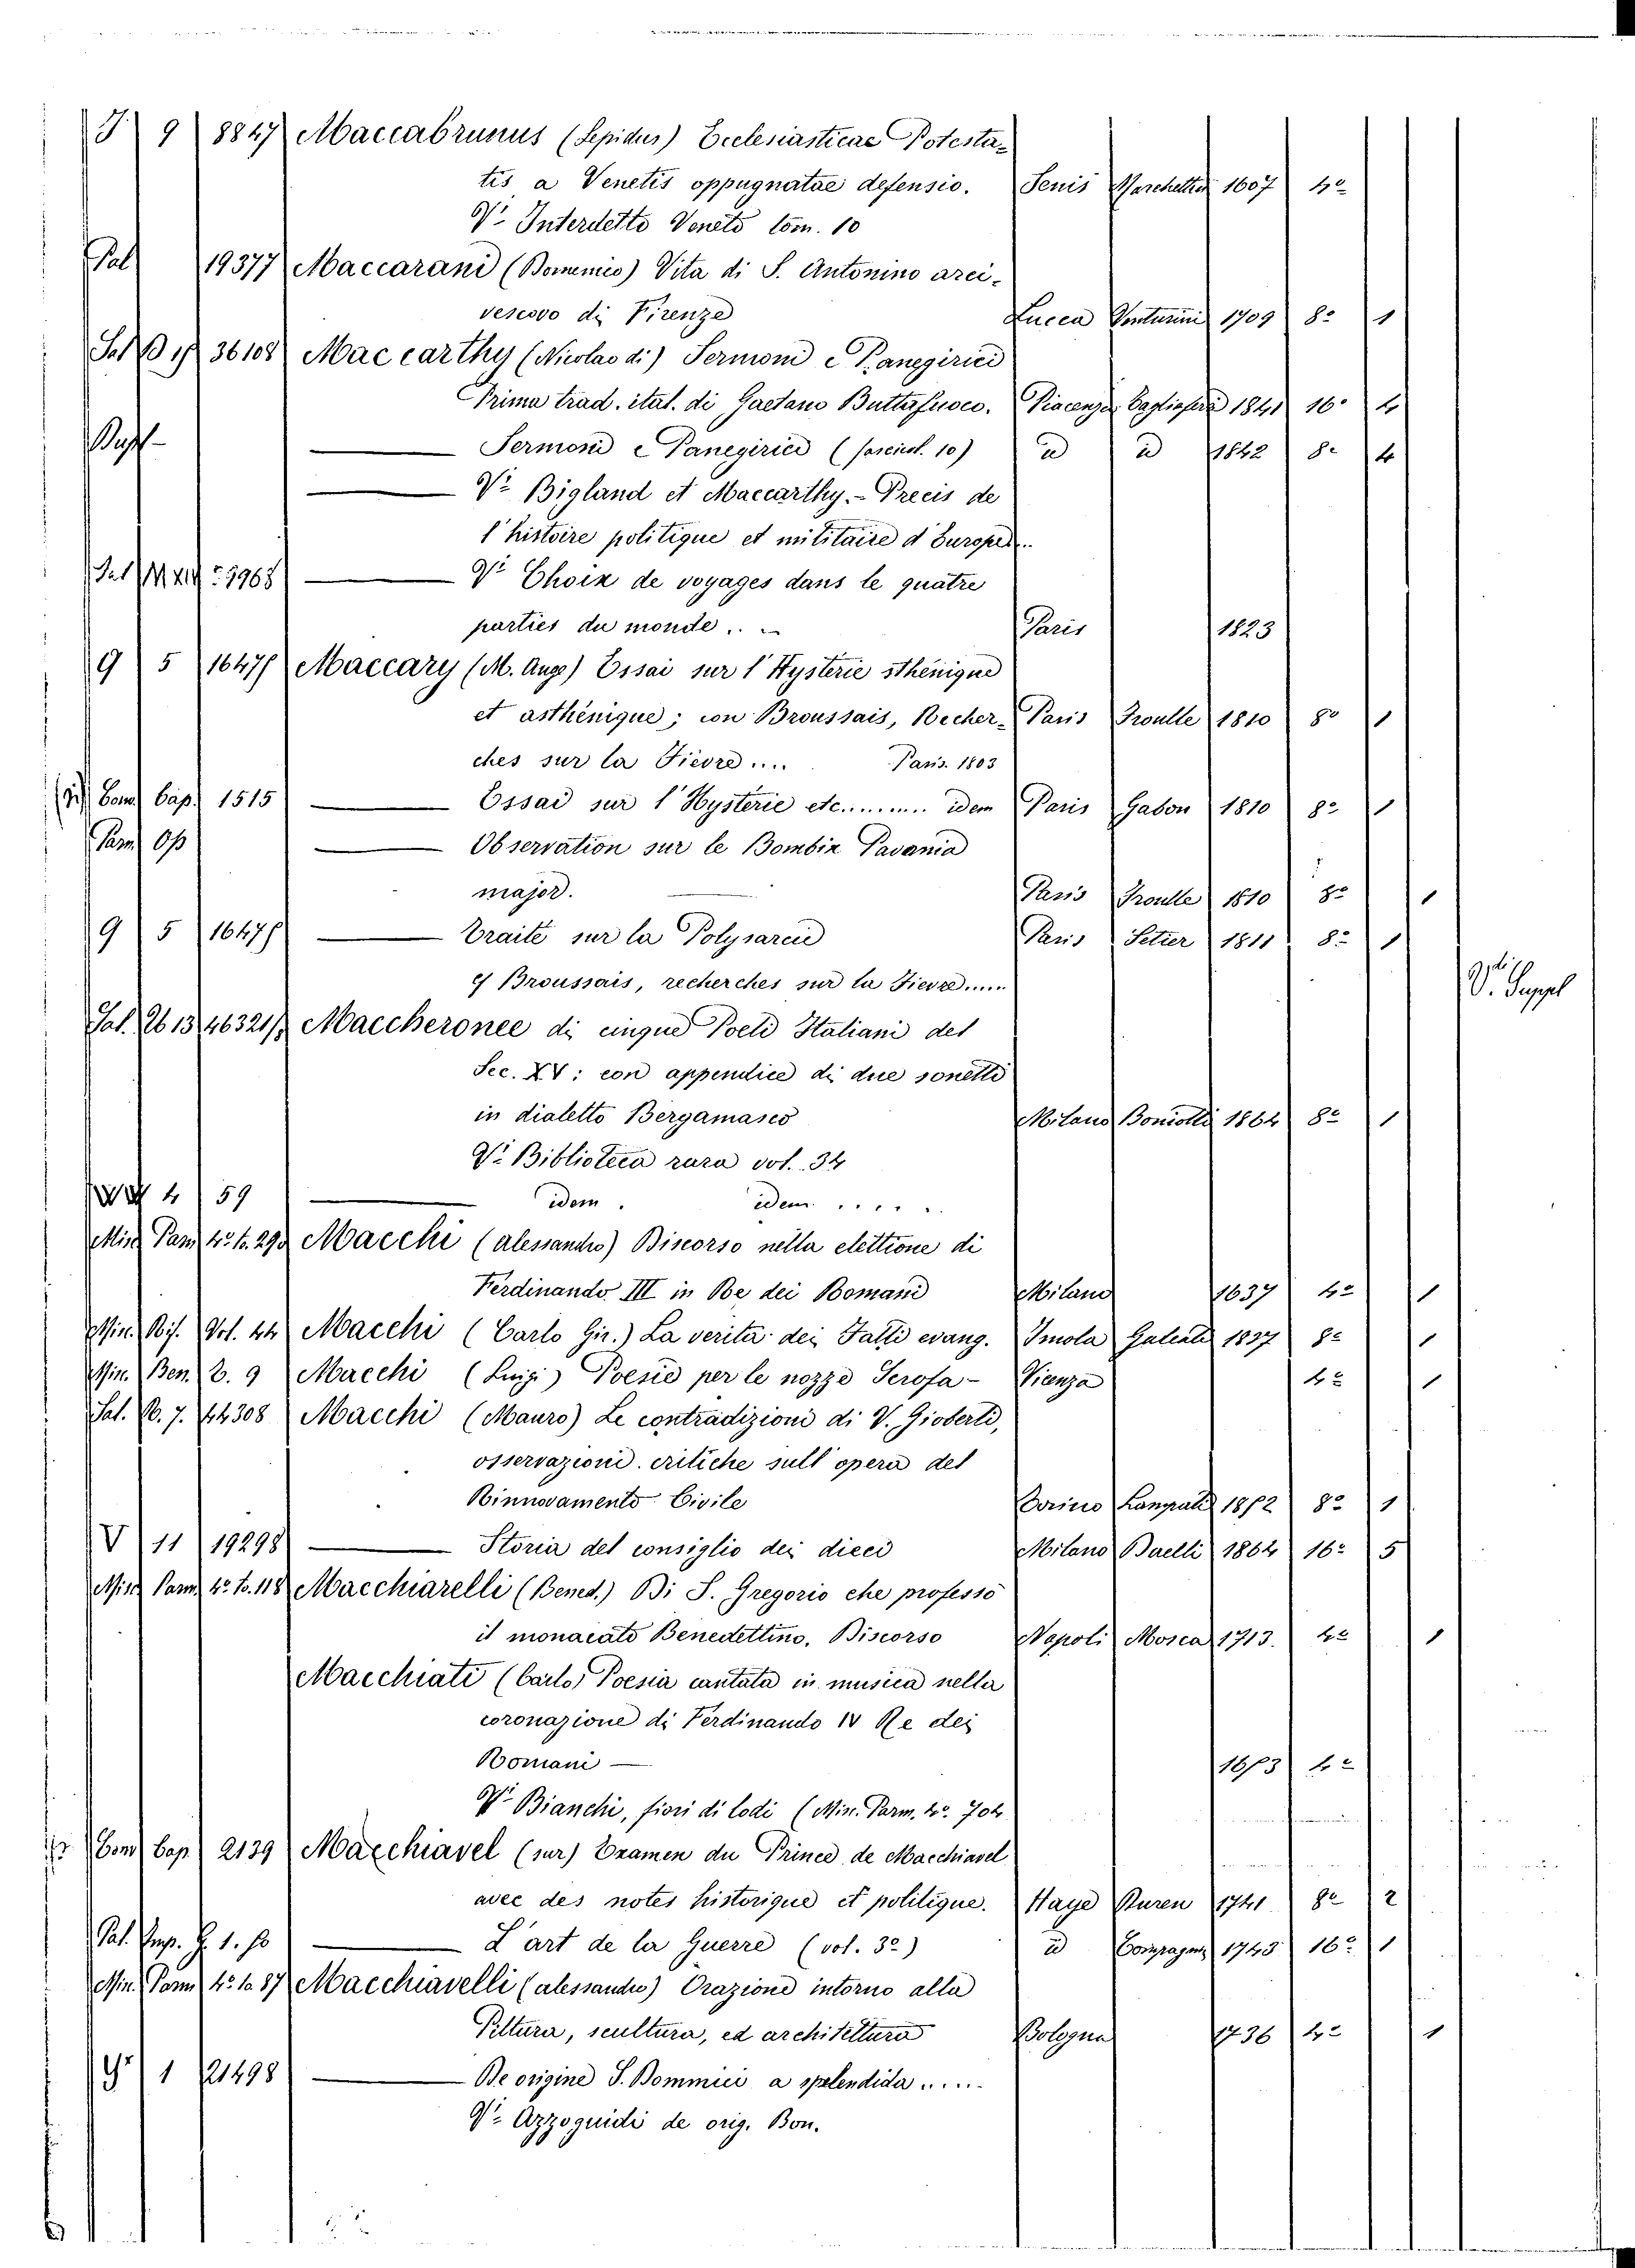 J 9 8847 Maccabrunus (Lepidus) Ecclesiasticae Potesta-
tis a Venetis oppugnatae defensio. Senis Marchetti 1607 4º
Vi Interdetto Veneto tom. 10
Pal 19377 Maccarani (Domenico) Vita di S. Antonino arci-
vescovo di Firenze Lucca Venturini 1709 8º 1
36108 Mac carthy (Nicolao di) Sermoni e Panegirici
Prima trad. ital. di Gaetano Buttafuoco. Piacenza 1841 16º 4
Sermoni e Panegirici (fascicol. 10) id id 1842 8º 4
Vi Bigland et Maccarthy. - Precis de
l'histoire politique et militaire d'Europe ..
Vi Choix de voyages dans le quatre
parties du monde .. Paris 1823
9 5 16475 Maccary (M. Ange) Essai sur l'Hysterie sthénique
et asthénique; con Broussais, Recher- Paris Froulle 1810 8º 1
ches sur la Fievre .... Paris. 1803
Com Cap. 1515 Essai sur l'Hysterie etc....... idem Paris Gabon 1810 8º 1
Parm Op Observation sur le Bombix Pavania
major. Paris Froulle 1810 8º 1
9 5 16475 Traité sur la Polysarcie Paris Setier 1811 8º 1
Broussais, recherches sur la Fievre.....
Vdi Suppl
Sal. 13 46321 Maccheronee di cinque Poeti Italiani del
Sec. XV; con appendice di due sonetti
in dialetto Bergamasco Milano Boniotti 1864 8º 1
Vi Biblioteca rara vol. 34
4 59 idem. idem .....
Misc Parm 4º t. 290 Macchi (Alessandro) Discorso nella elettione di
Ferdinando III in Re dei Romani Milano 1637 4º 1
Misc. Ris. Vol. 44 Macchi (Carlo Gir.) La verita dei Fatti evang. Imola Galeati 1897 8º 1
Misc. Ben. B. 9 Macchi (Luigi) Poesie per le nozze Serofa - Vicenza 4º 1
Sal. B. 7. 44308 Macchi (Mauro) Le contradizioni di V. Gioberti,
osservazioni critiche sull'opera del
Rinnovamento Civile Torino 1852 8º 1
V 11 19298 Storia del consiglio dei dieci Milano Daelli 1864 16º 5
Misc Parm 4º t. 118 Macchiarelli (Bened.) Di S. Gregorio che professò
il monacato Benedettino, Discorso Napoli Mosca 1713. 4º 1
Macchiati (Carlo) Poesia cantata in musica nella
coronazione di Ferdinando IV Re dei
Romani — 1653 4º
Vi Bianchi, fiori di lodi (Min. Parm. 4º. 704
Com Cap. 2139 Macchiavel (sur) Examen du Prince de Macchiavel
avec des notes historique et politique. Haye Duren 1741 8º 2
L'art de la Guerre (vol. 3º) id Compagnie 1743 16º 1
Misc. Parm 4º to 87 Macchiavelli (Alessandro) Orazione intorno alla
Pittura, scultura, ed architettura Bologna 1736 4º 1
1 21498 De origine S. Dommici a splendida .....
Vi Azzoguidi de orig. Bon.